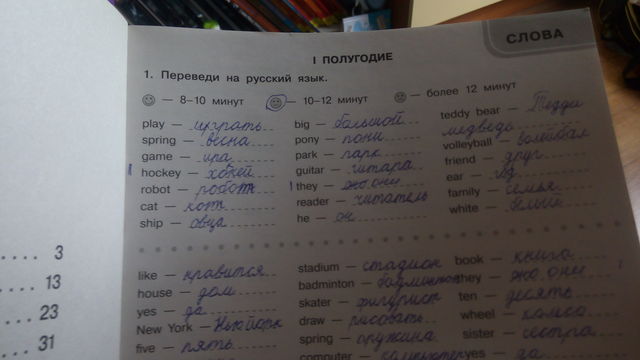 СЛОВА
I ПОЛУГОДИЕ
1. Переведи на русский язык.
— 8–10 минут — 10–12 минут — более 12 минут
play — играть
spring — весна
game — игра
hockey — хоккей
robot — робот
cat — кот
ship — овца
big — большой
pony — пони
park — парк
guitar — гитара
they — они
reader — читатель
he — он
teddy bear — Тедди
медведь
volleyball — волейбол
friend — друг
ear —
family — семья
white — белый
like — нравится
house — дом
yes — да
New York — Нью Йорк
five — пять
stadium — стадион
badminton — бадминтон
skater — фигурист
draw — рисовать
spring — пружина
computer — компьютер
book — книга
they — они
ten — десять
wheel — колесо
sister — сестра
yes — да
3
13
23
31